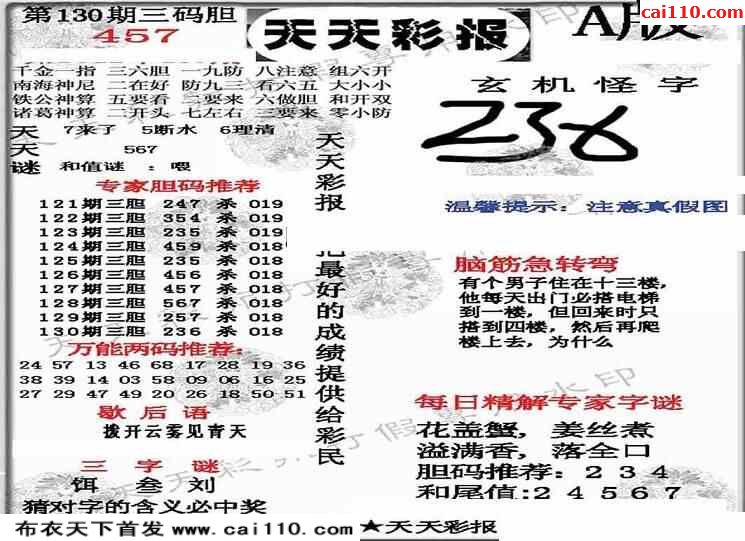 第130期三码胆
457
天天彩报
A版
cai110.com
千金一指 三六胆 一九防 八注意 组六开
南海神尼 二在好 防九三 看六五 大小小
铁公神算 五要看 二要来 六做胆 和开双
诸葛神算 二开头 七左右 三要来 零小防
天 7来了 5断水 6理清
天 567
谜 和值谜 : 喂
专家胆码推荐
121期三胆 247 杀 019
122期三胆 354 杀 019
123期三胆 235 杀 019
124期三胆 459 杀 018
125期三胆 236 杀 018
126期三胆 456 杀 018
127期三胆 457 杀 018
128期三胆 567 杀 018
129期三胆 257 杀 018
130期三胆 236 杀 018
万能两码推荐:
24 57 13 46 68 17 28 19 36
38 39 14 03 58 09 06 16 25
27 29 47 49 20 26 18 50 51
歇后语
拨开云雾见青天
三字谜
饵 叁 刘
猜对字的含义必中奖
天天彩报
把最好的成绩提供给彩民
玄机怪字
236
温馨提示: 注意真假图
脑筋急转弯
有个男子住在十三楼,
他每天出门必搭电梯
到一楼, 但回来时只
搭到四楼, 然后再爬
楼上去, 为什么
每日精解专家字谜
花盖蟹, 姜丝煮
溢满香, 落全口
胆码推荐: 234
和尾值:24567
布衣天下首发 www.cai110.com ★天天彩报